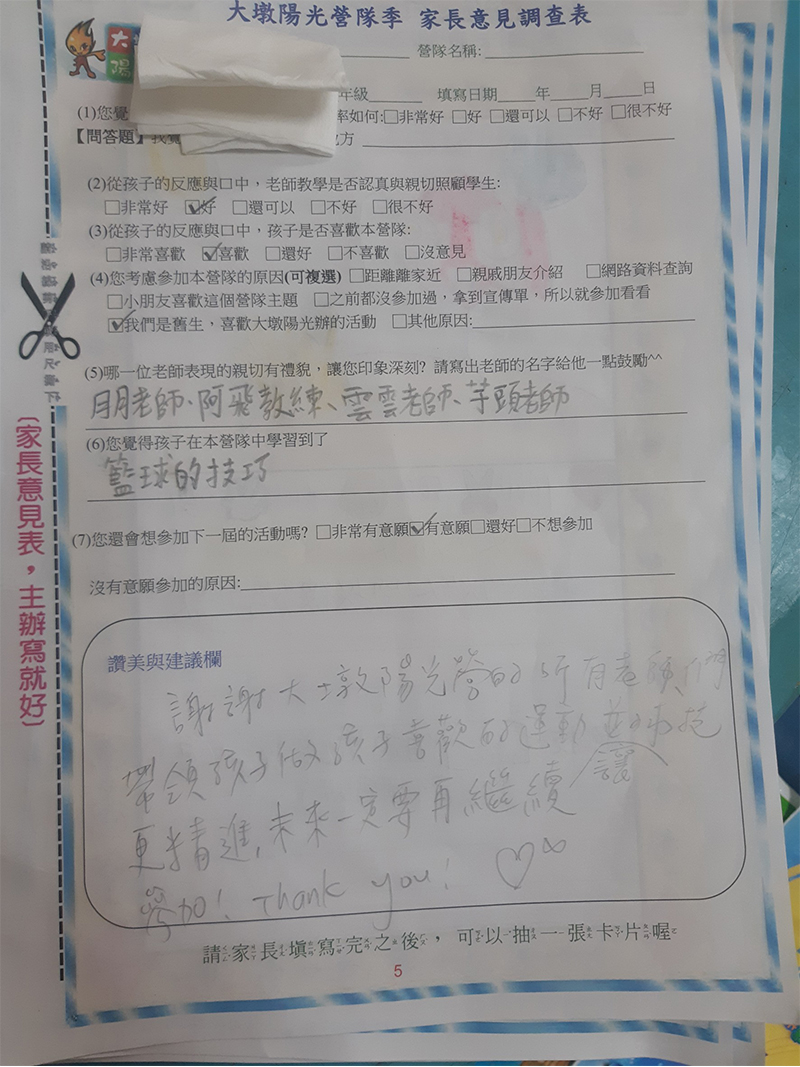 大墩陽光營隊季 家長意見調查表
大
陽
營隊名稱:
年級 填寫日期 年 月 日
(1)您覺 率如何:□非常好 □好 □還可以 □不好 □很不好
【問答題】我覺 方
(2)從孩子的反應與口中,老師教學是否認真與親切照顧學生:
□非常好 ☑好 □還可以 □不好 □很不好
(3)從孩子的反應與口中,孩子是否喜歡本營隊:
□非常喜歡 ☑喜歡 □還好 □不喜歡 □沒意見
(4)您考慮參加本營隊的原因(可複選) □距離離家近 □親戚朋友介紹 □網路資料查詢
□小朋友喜歡這個營隊主題 □之前都沒參加過,拿到宣傳單,所以就參加看看
☑我們是舊生,喜歡大墩陽光辦的活動 □其他原因:
(5)哪一位老師表現的親切有禮貌,讓您印象深刻? 請寫出老師的名字給他一點鼓勵^^
月月老師、阿飛教練、雲雲老師、芋頭老師
(6)您覺得孩子在本營隊中學習到了
籃球的技巧
(7)您還會想參加下一屆的活動嗎? □非常有意願☑有意願□還好□不想參加
沒有意願參加的原因:
讚美與建議欄
謝謝大墩陽光營的所有老師們
帶領孩子做孩子喜歡的運動 讓 技
更精進,未來一定要再繼續
參加! Thank you! ♡
請家長填寫完之後,可以抽一張卡片喔
5
(家長意見表,主辦寫就好)